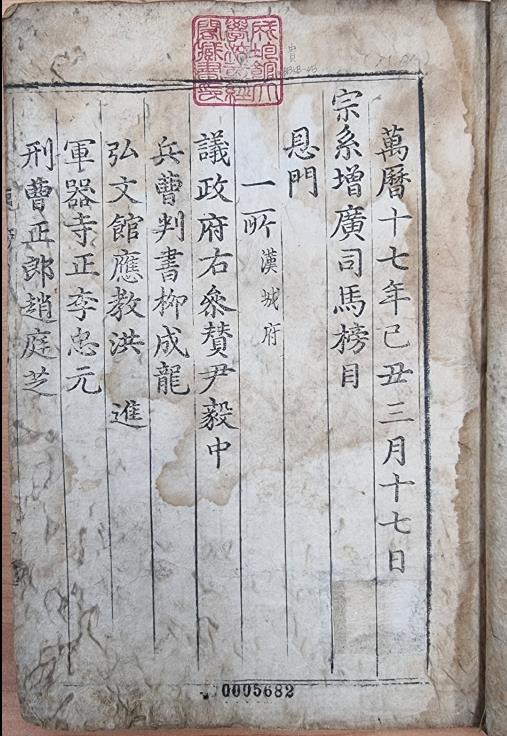 成均館大
學校尊經
閣藏書
萬曆十七年己丑三月十七日
宗系增廣司馬榜目
恩門
一所 漢城府
議政府右叅賛尹毅中
兵曹判書柳成龍
弘文館應敎洪 進
軍器寺正李忠元
刑曹正郎趙庭芝
0005682